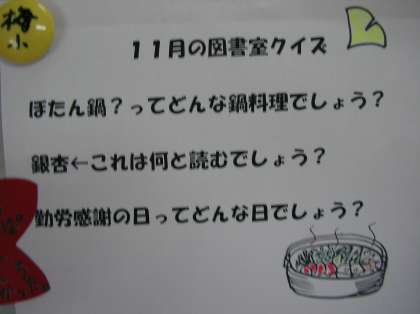 梅小
11月の図書室クイズ
ぼたん鍋?ってどんな鍋料理でしょう?
銀杏←これは何と読むでしょう?
勤労感謝の日ってどんな日でしょう?